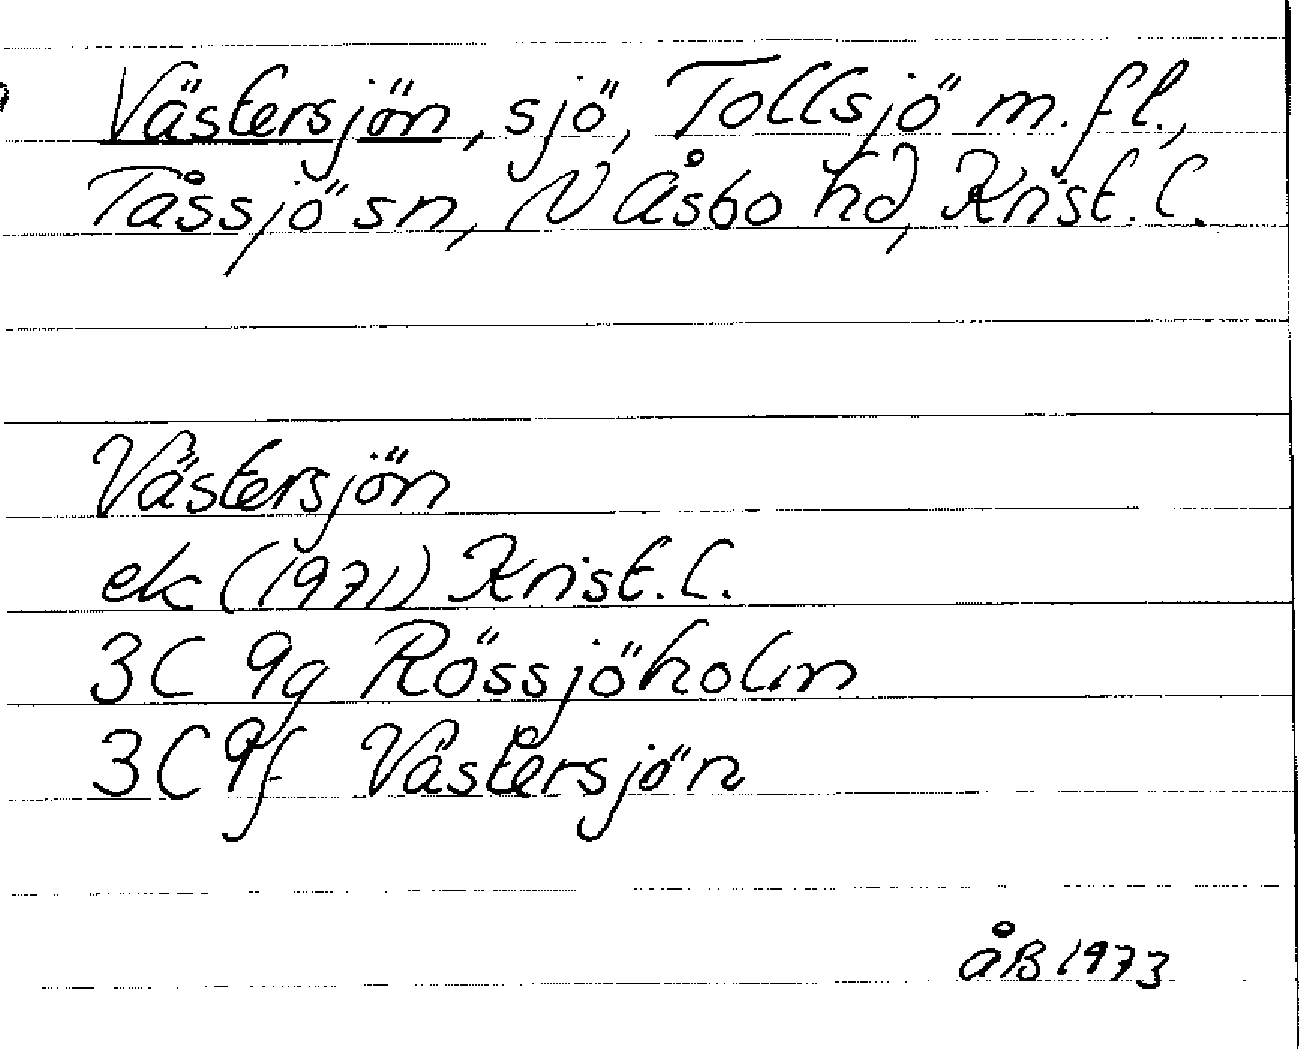 Västersjön, sjö, Tollsjö m.fl.,
Tåssjö sn, N Åsbo hd, Krist. l.
Västersjön
ek (1971) Krist. l.
3C 9g Rössjöholm
3C 9f Västersjön
åB 1973